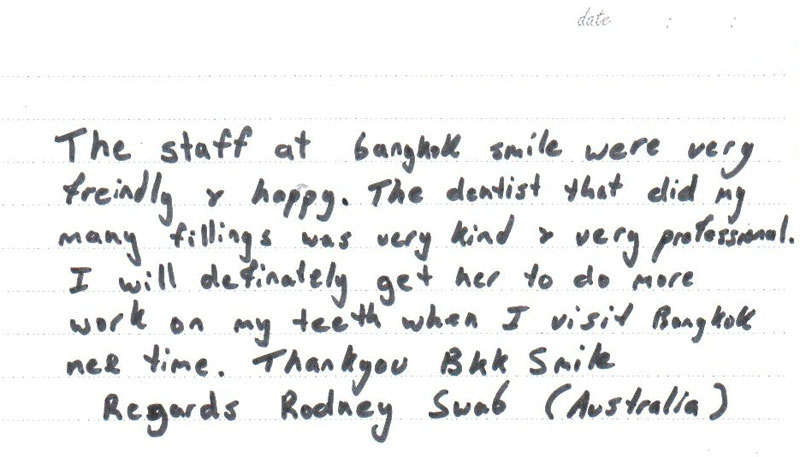 date : :
The staff at bangkok smile were very
freindly & happy. The dentist that did my
many fillings was very kind & very professional.
I will definately get her to do more
work on my teeth when I visit Bangkok
nex time. Thankyou Bkk Smile
Regards Rodney Swab (Australia)